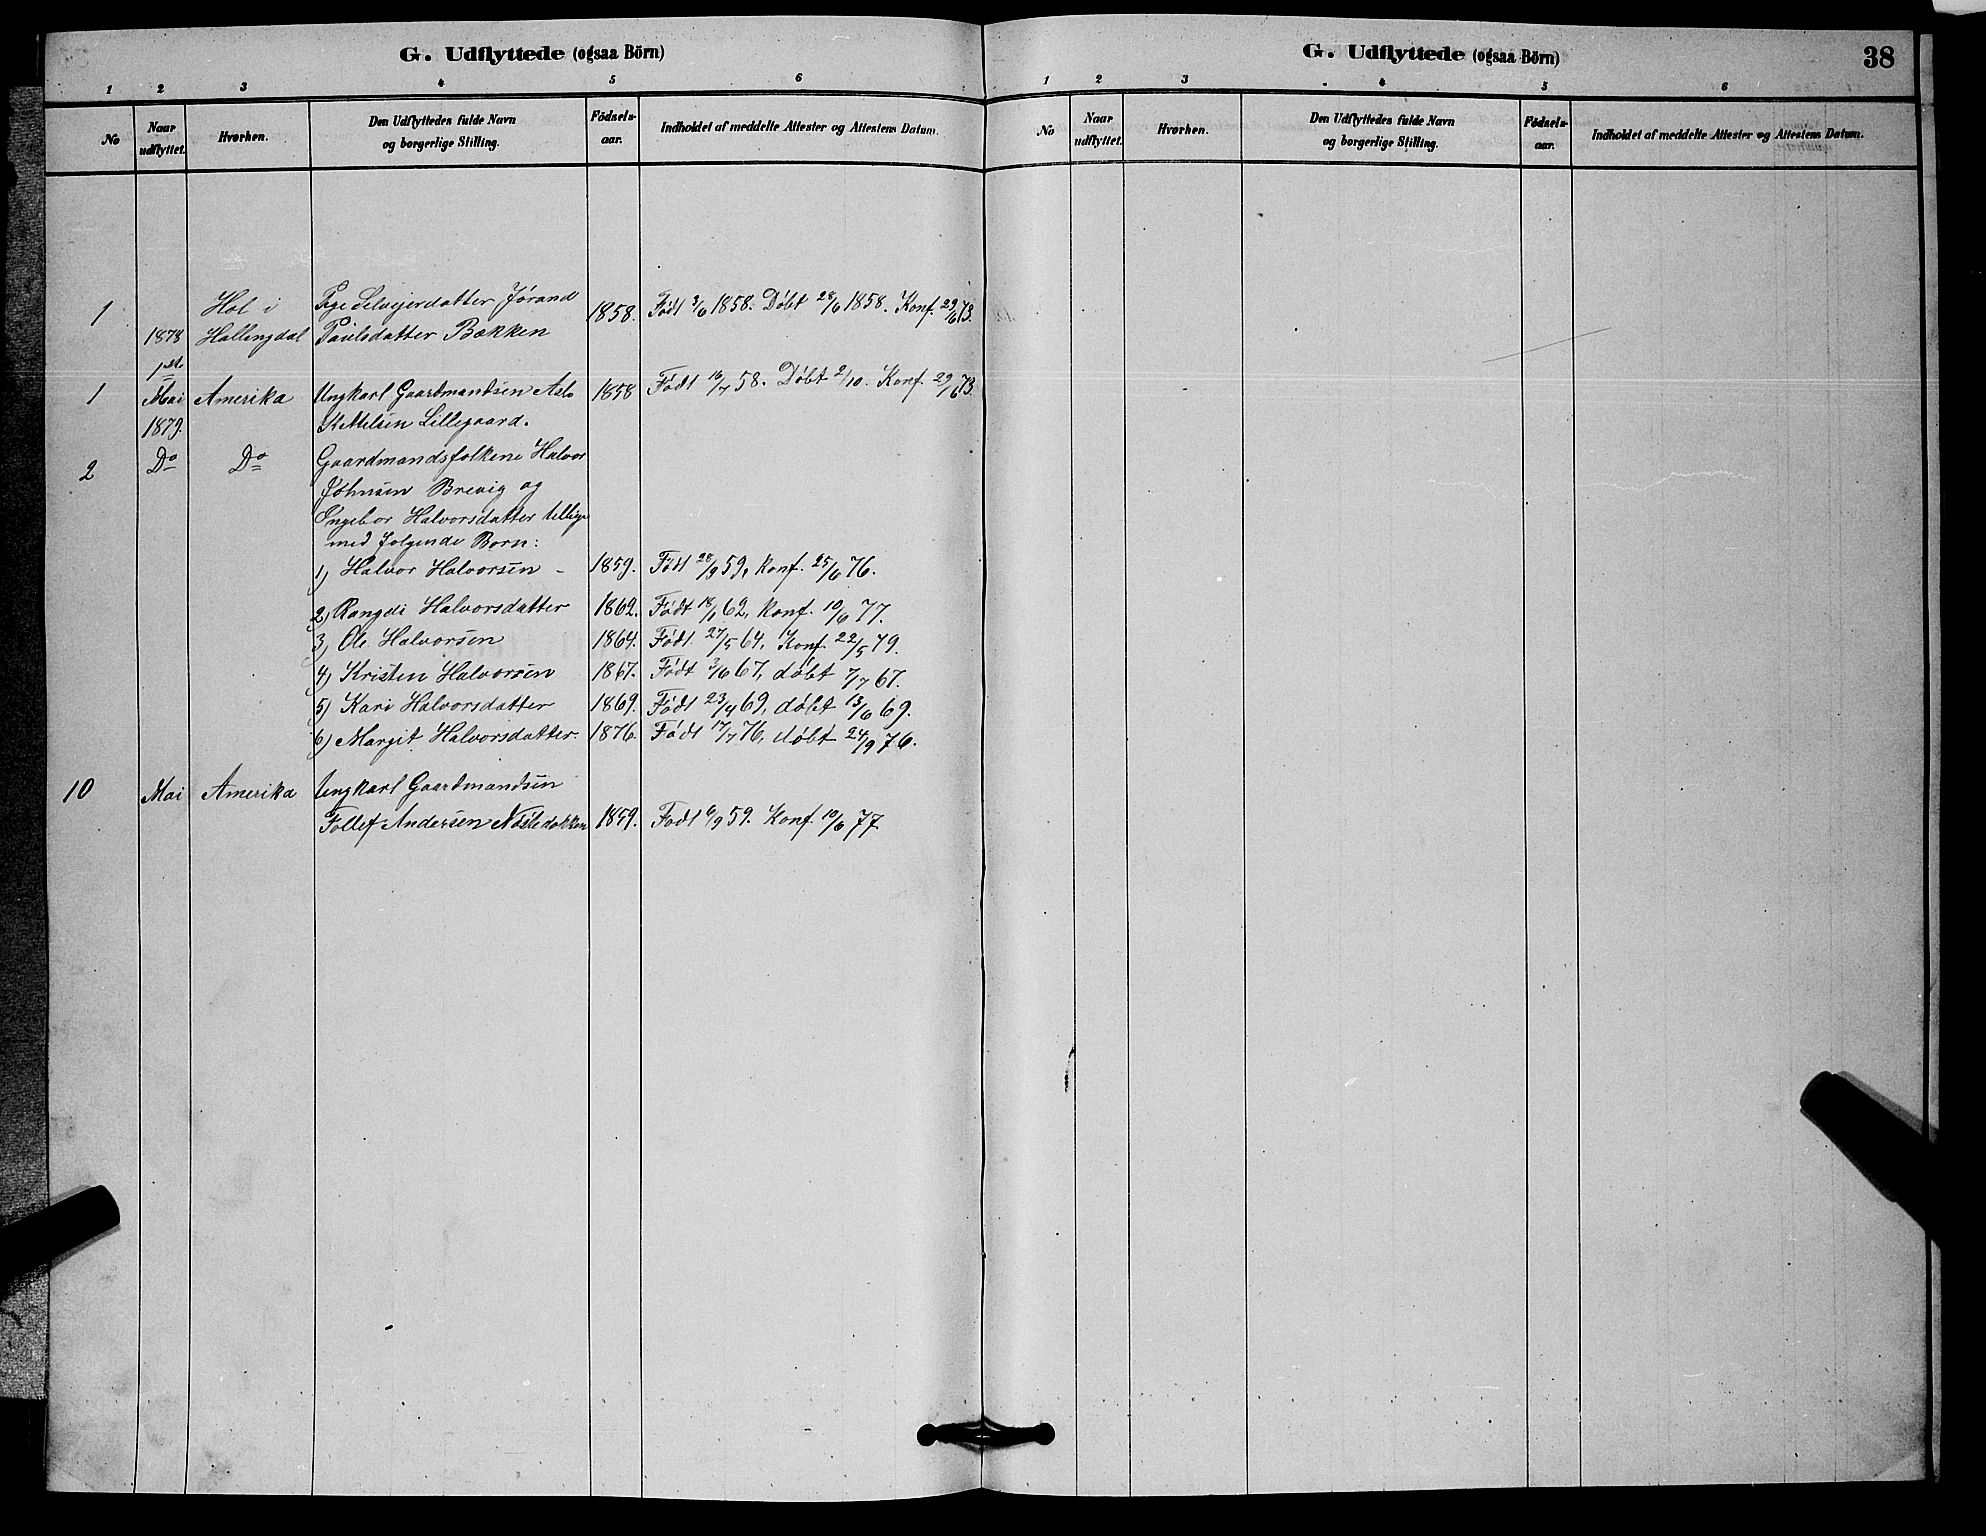 G. Udflyttede (ogsaa Börn)
1 2 3 4 5 6
No
Naar udflyttet.
Hvorhen.
Den Udflyttedes fulde Navn og borgerlige Stilling.
Fødselsaar.
Indholdet af meddelte Attester og Attestens Datum.
1 1878 Hol i Hallingdal Pige Selveierdatter Jørand 1858. Født 3/6 1858. Døbt 28/6 1858. Konf. 29/6 73.
Paulsdatter Bækken
1 1ste Mai 1879. Amerika Ungkarl Gaardmandsøn Aslo 1858 Født 16/7 58. Døbt 2/10. Konf. 29/6 73.
Kittilsen Lillegaard.
2 Do Do Gaardmandsfolkene Halvor
Johnsen Brevig og
Ingebor Halvorsdatter tillige
med følgende Børn:
1) Halvor Halvorsen - 1859. Født 28/9 59, Konf. 25/6 76.
2) Rangdi Halvorsdatter 1862. Født 18/1 62, Konf. 10/6 77.
3) Ole Halvorsen 1864. Født 27/5 64, Konf. 22/5 79.
4) Kristen Halvorsen 1867. Født 3/6 67, døbt 7/7 67.
5) Kari Halvorsdatter 1869. Født 23/4 69, døbt 13/6 69.
6) Margit Halvorsdatter. 1876. Født 17/7 76, døbt 24/9 76.
10 Mai Amerika Ungkarl Gaardmandsøn
Tollef Andersen Nøstedokken 1859. Født 6/9 59. Konf. 10/6 77
G. Udflyttede (ogsaa Börn)
38
1 2 3 4 5 6
No
Naar udflyttet.
Hvorhen.
Den Udflyttedes fulde Navn og borgerlige Stilling.
Fødselsaar.
Indholdet af meddelte Attester og Attestens Datum.